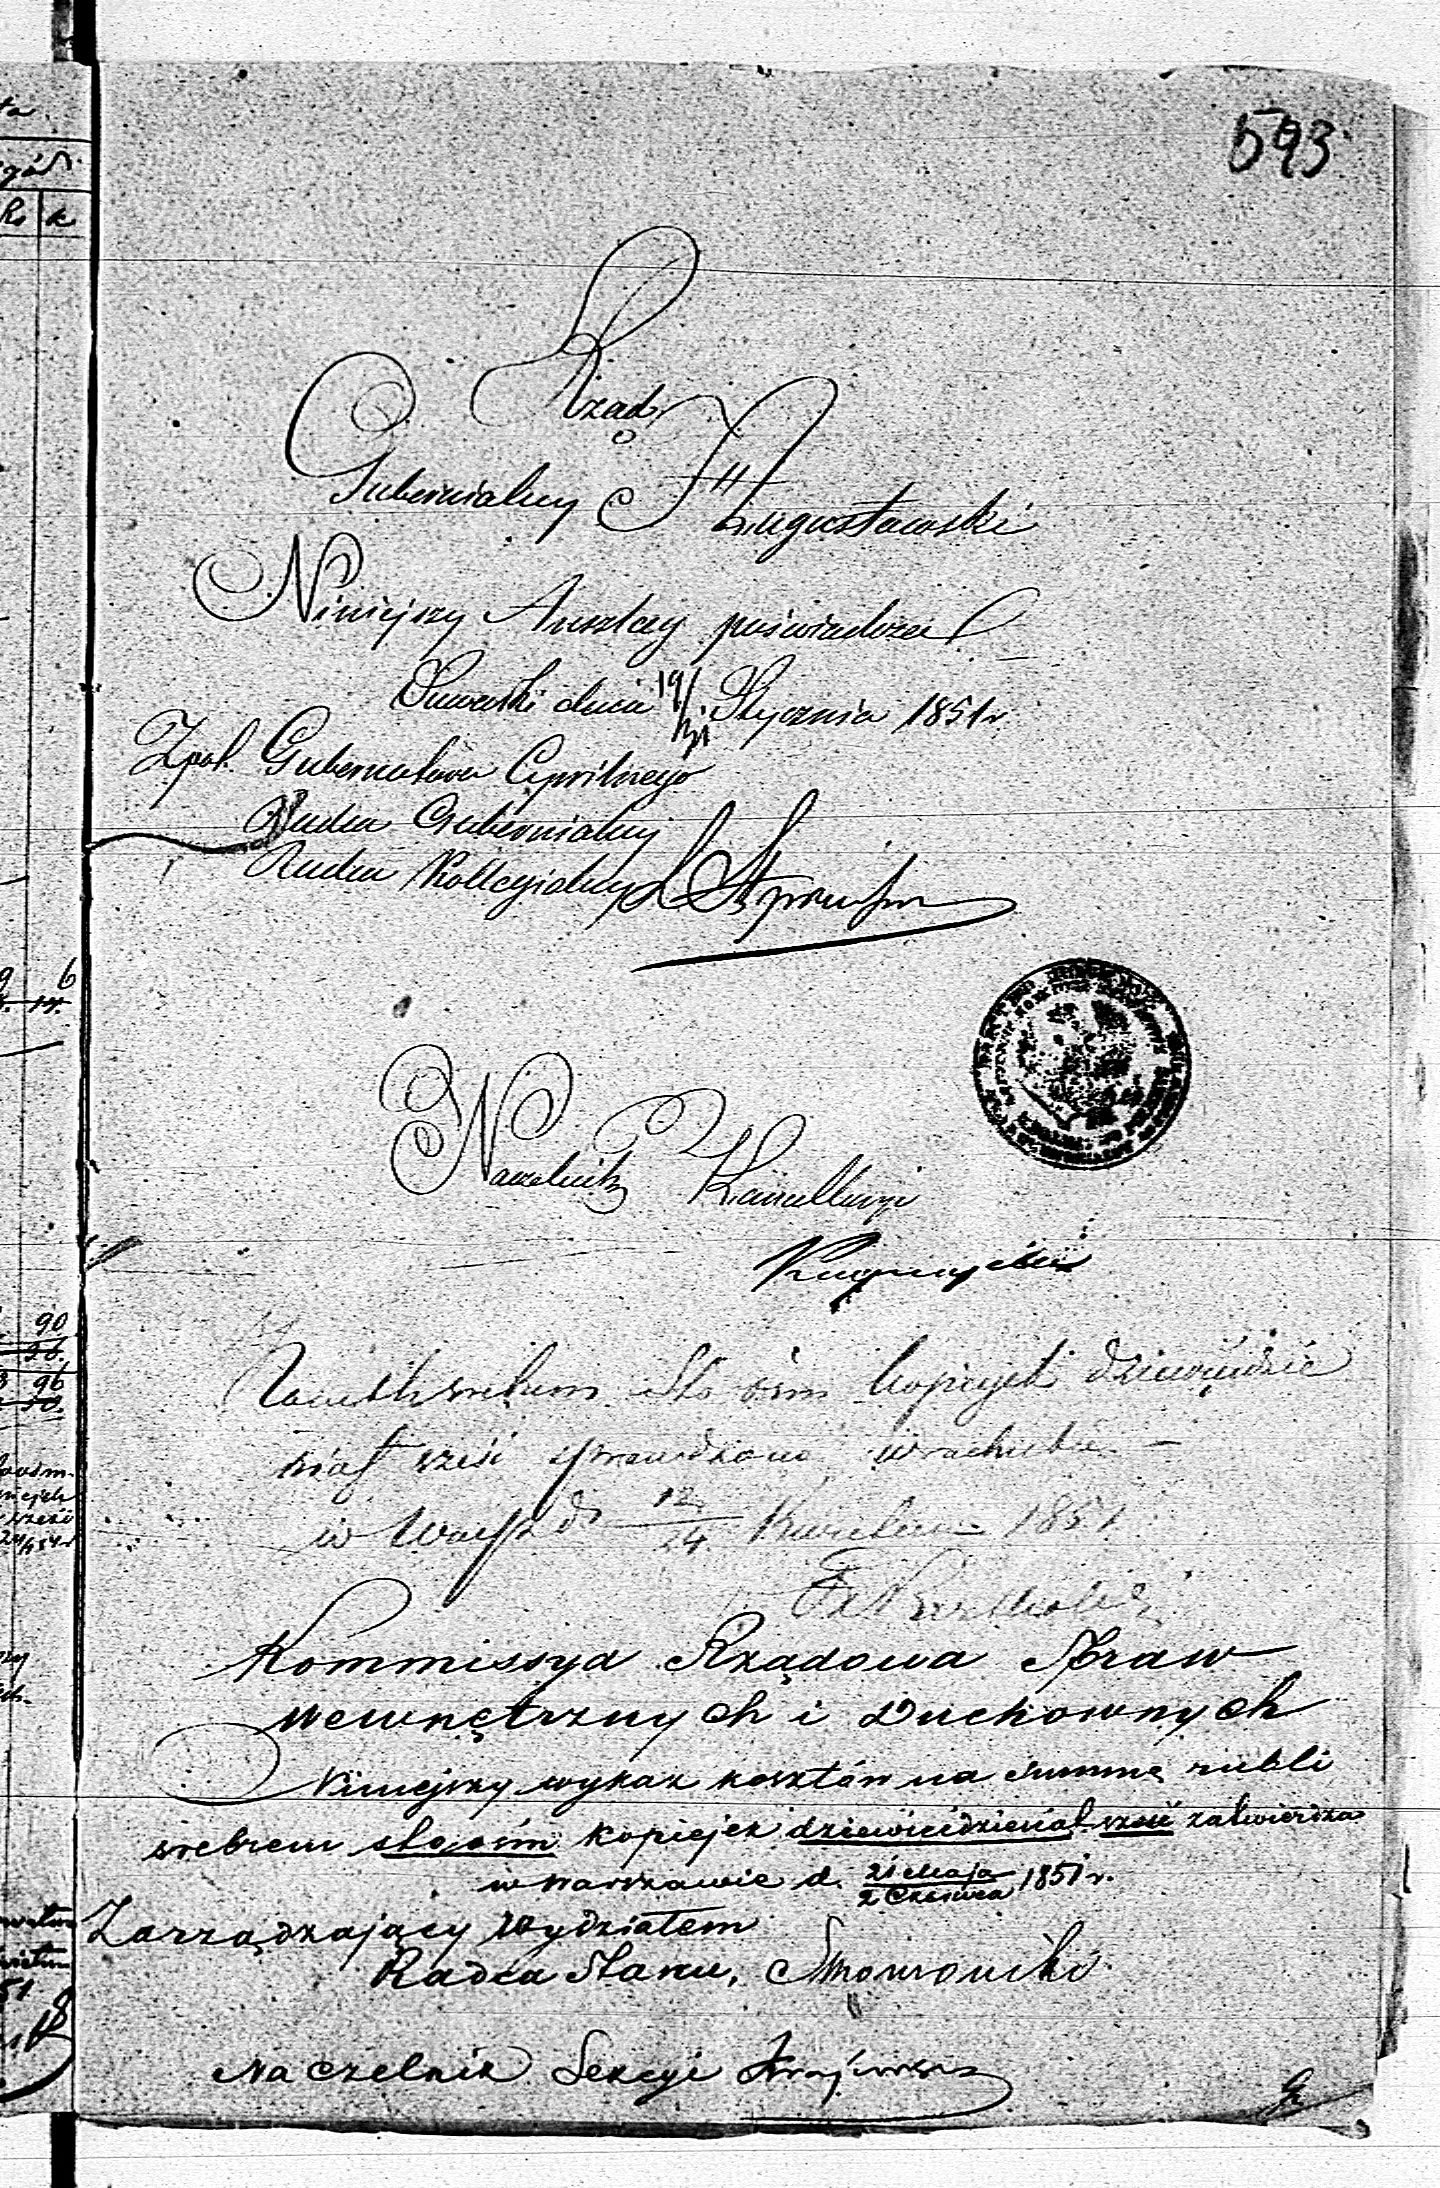 593
Rząd
Gubernialny Augustowski
Niniejszy Anszlag poświadcza
Suwałki dnia 19/31 Stycznia 1851 r
Zpol. Gubernatora Cywilnego
Radca Gubernialny
Radca Kollegialny
Naczelnik Kancellaryi
srebrem Sto ośm kopiejek dziewięćdzie
siąt sześć sprawdzono w rachubie
w Warsz d. 12/24 Kwietnia 1851
Kommissya Rządowa Spraw
Wewnętrznych i Duchownych
Niniejszy wykaz kosztów na summę rubli
srebrem sto ośm kopiejek dziewięćdziesiąt sześć zatwierdza
w Warszawie d. 21 Maja/2 Czerwca 1851 r.
Zarządzający Wydziałem
Radca Stanu,
Naczelnik Sekcyi